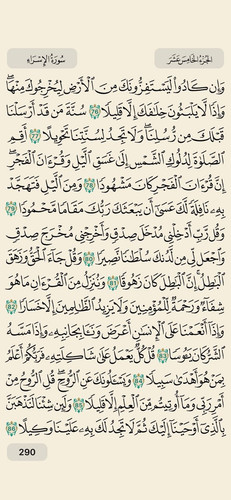 الجزء الخامس عشر
سورة الإسراء
وَإِن كَادُوا۟ لَيَسْتَفِزُّونَكَ مِنَ ٱلْأَرْضِ لِيُخْرِجُوكَ مِنْهَا ۖ
وَإِذًا لَّا يَلْبَثُونَ خِلَـٰفَكَ إِلَّا قَلِيلًا ٧٦ سُنَّةَ مَن قَدْ أَرْسَلْنَا
قَبْلَكَ مِن رُّسُلِنَا ۖ وَلَا تَجِدُ لِسُنَّتِنَا تَحْوِيلًا ٧٧ أَقِمِ
ٱلصَّلَوٰةَ لِدُلُوكِ ٱلشَّمْسِ إِلَىٰ غَسَقِ ٱلَّيْلِ وَقُرْءَانَ ٱلْفَجْرِ ۖ
إِنَّ قُرْءَانَ ٱلْفَجْرِ كَانَ مَشْهُودًا ٧٨ وَمِنَ ٱلَّيْلِ فَتَهَجَّدْ
بِهِۦ نَافِلَةً لَّكَ عَسَىٰٓ أَن يَبْعَثَكَ رَبُّكَ مَقَامًا مَّحْمُودًا ٧٩
وَقُل رَّبِّ أَدْخِلْنِى مُدْخَلَ صِدْقٍ وَأَخْرِجْنِى مُخْرَجَ صِدْقٍ
وَٱجْعَل لِّى مِن لَّدُنكَ سُلْطَـٰنًا نَّصِيرًا ٨٠ وَقُلْ جَآءَ ٱلْحَقُّ وَزَهَقَ
ٱلْبَـٰطِلُ ۚ إِنَّ ٱلْبَـٰطِلَ كَانَ زَهُوقًا ٨١ وَنُنَزِّلُ مِنَ ٱلْقُرْءَانِ مَا هُوَ
شِفَآءٌ وَرَحْمَةٌ لِّلْمُؤْمِنِينَ ۙ وَلَا يَزِيدُ ٱلظَّـٰلِمِينَ إِلَّا خَسَارًا ٨٢
وَإِذَآ أَنْعَمْنَا عَلَى ٱلْإِنسَـٰنِ أَعْرَضَ وَنَـَٔا بِجَانِبِهِۦ ۖ وَإِذَا مَسَّهُ
ٱلشَّرُّ كَانَ يَـُٔوسًا ٨٣ قُلْ كُلٌّ يَعْمَلُ عَلَىٰ شَاكِلَتِهِۦ فَرَبُّكُمْ أَعْلَمُ
بِمَنْ هُوَ أَهْدَىٰ سَبِيلًا ٨٤ وَيَسْـَٔلُونَكَ عَنِ ٱلرُّوحِ ۖ قُلِ ٱلرُّوحُ مِنْ
أَمْرِ رَبِّى وَمَآ أُوتِيتُم مِّنَ ٱلْعِلْمِ إِلَّا قَلِيلًا ٨٥ وَلَئِن شِئْنَا لَنَذْهَبَنَّ
بِٱلَّذِىٓ أَوْحَيْنَآ إِلَيْكَ ثُمَّ لَا تَجِدُ لَكَ بِهِۦ عَلَيْنَا وَكِيلًا ٨٦
290